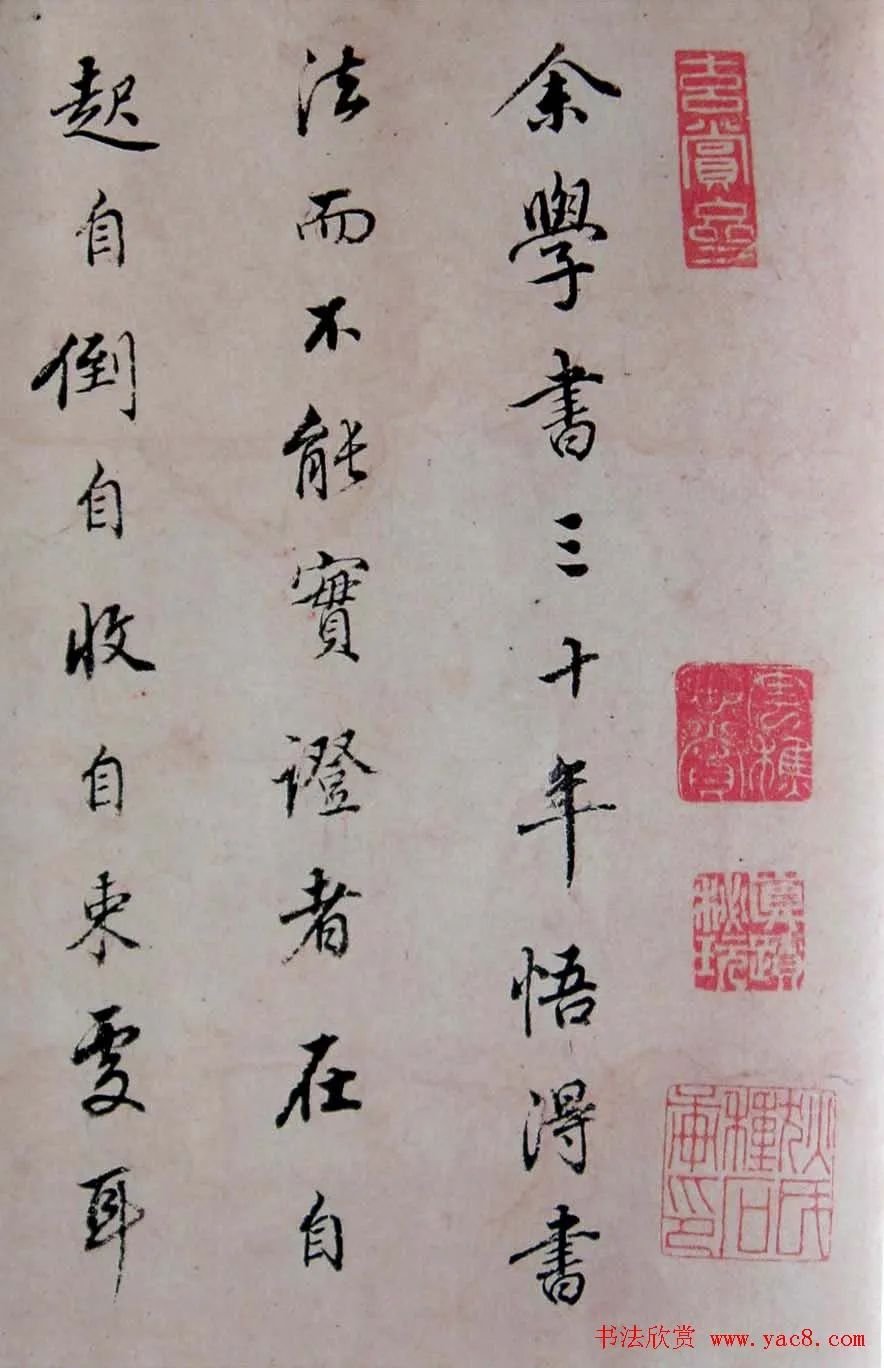 余學書三十年悟得書
法而不能實證者在自
起自倒自收自束處耳
真蹟
秘玩
書法欣賞 www.yac8.com